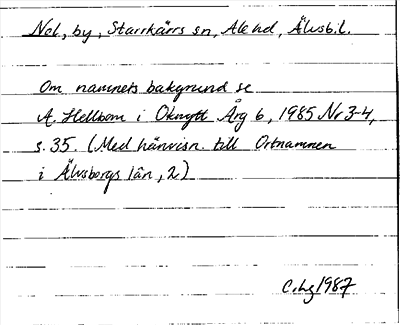 Nol, by, Starrkärrs sn, Ale hd, Älvsb.l.
Om namnets bakgrund se
A. Hellbom i Oknytt Årg 6, 1985 Nr 3-4,
s. 35. (Med hänvisn. till Ortnamnen
i Älvsborgs län, 2)
1987